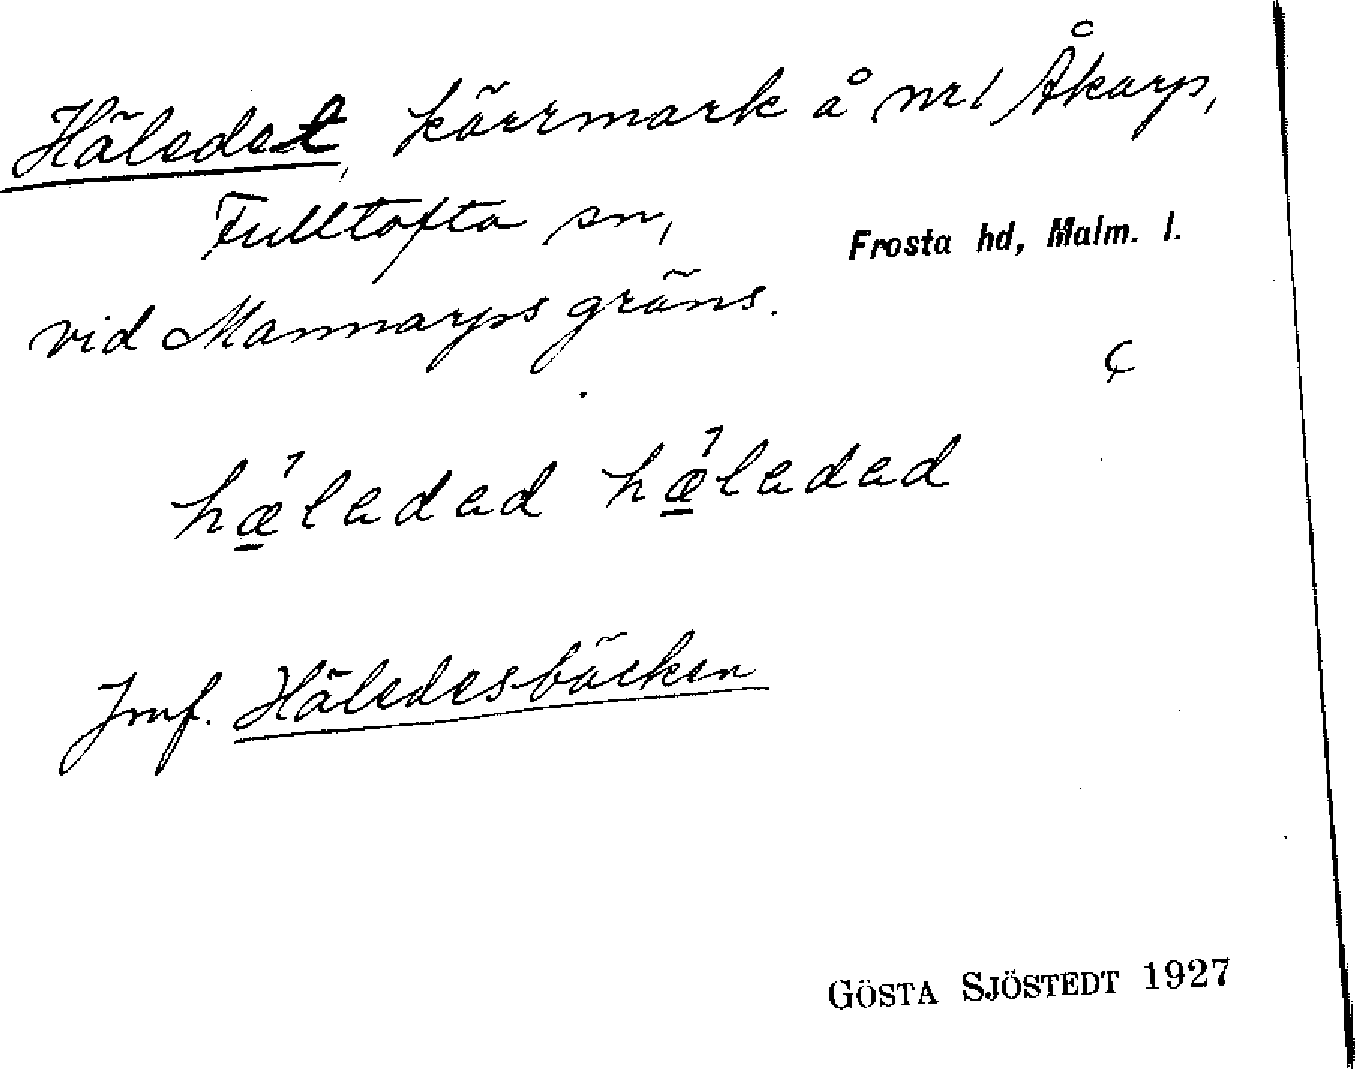 Häledet, kärrmark å nr 1 Åkarp,
Fulltofta sn, Frosta hd, Malm. l.
vid Mannarps gräns.
hǽ̱ladad hǽ̱ladad
Jmf. Häledesbäcken
GÖSTA SJÖSTEDT 1927